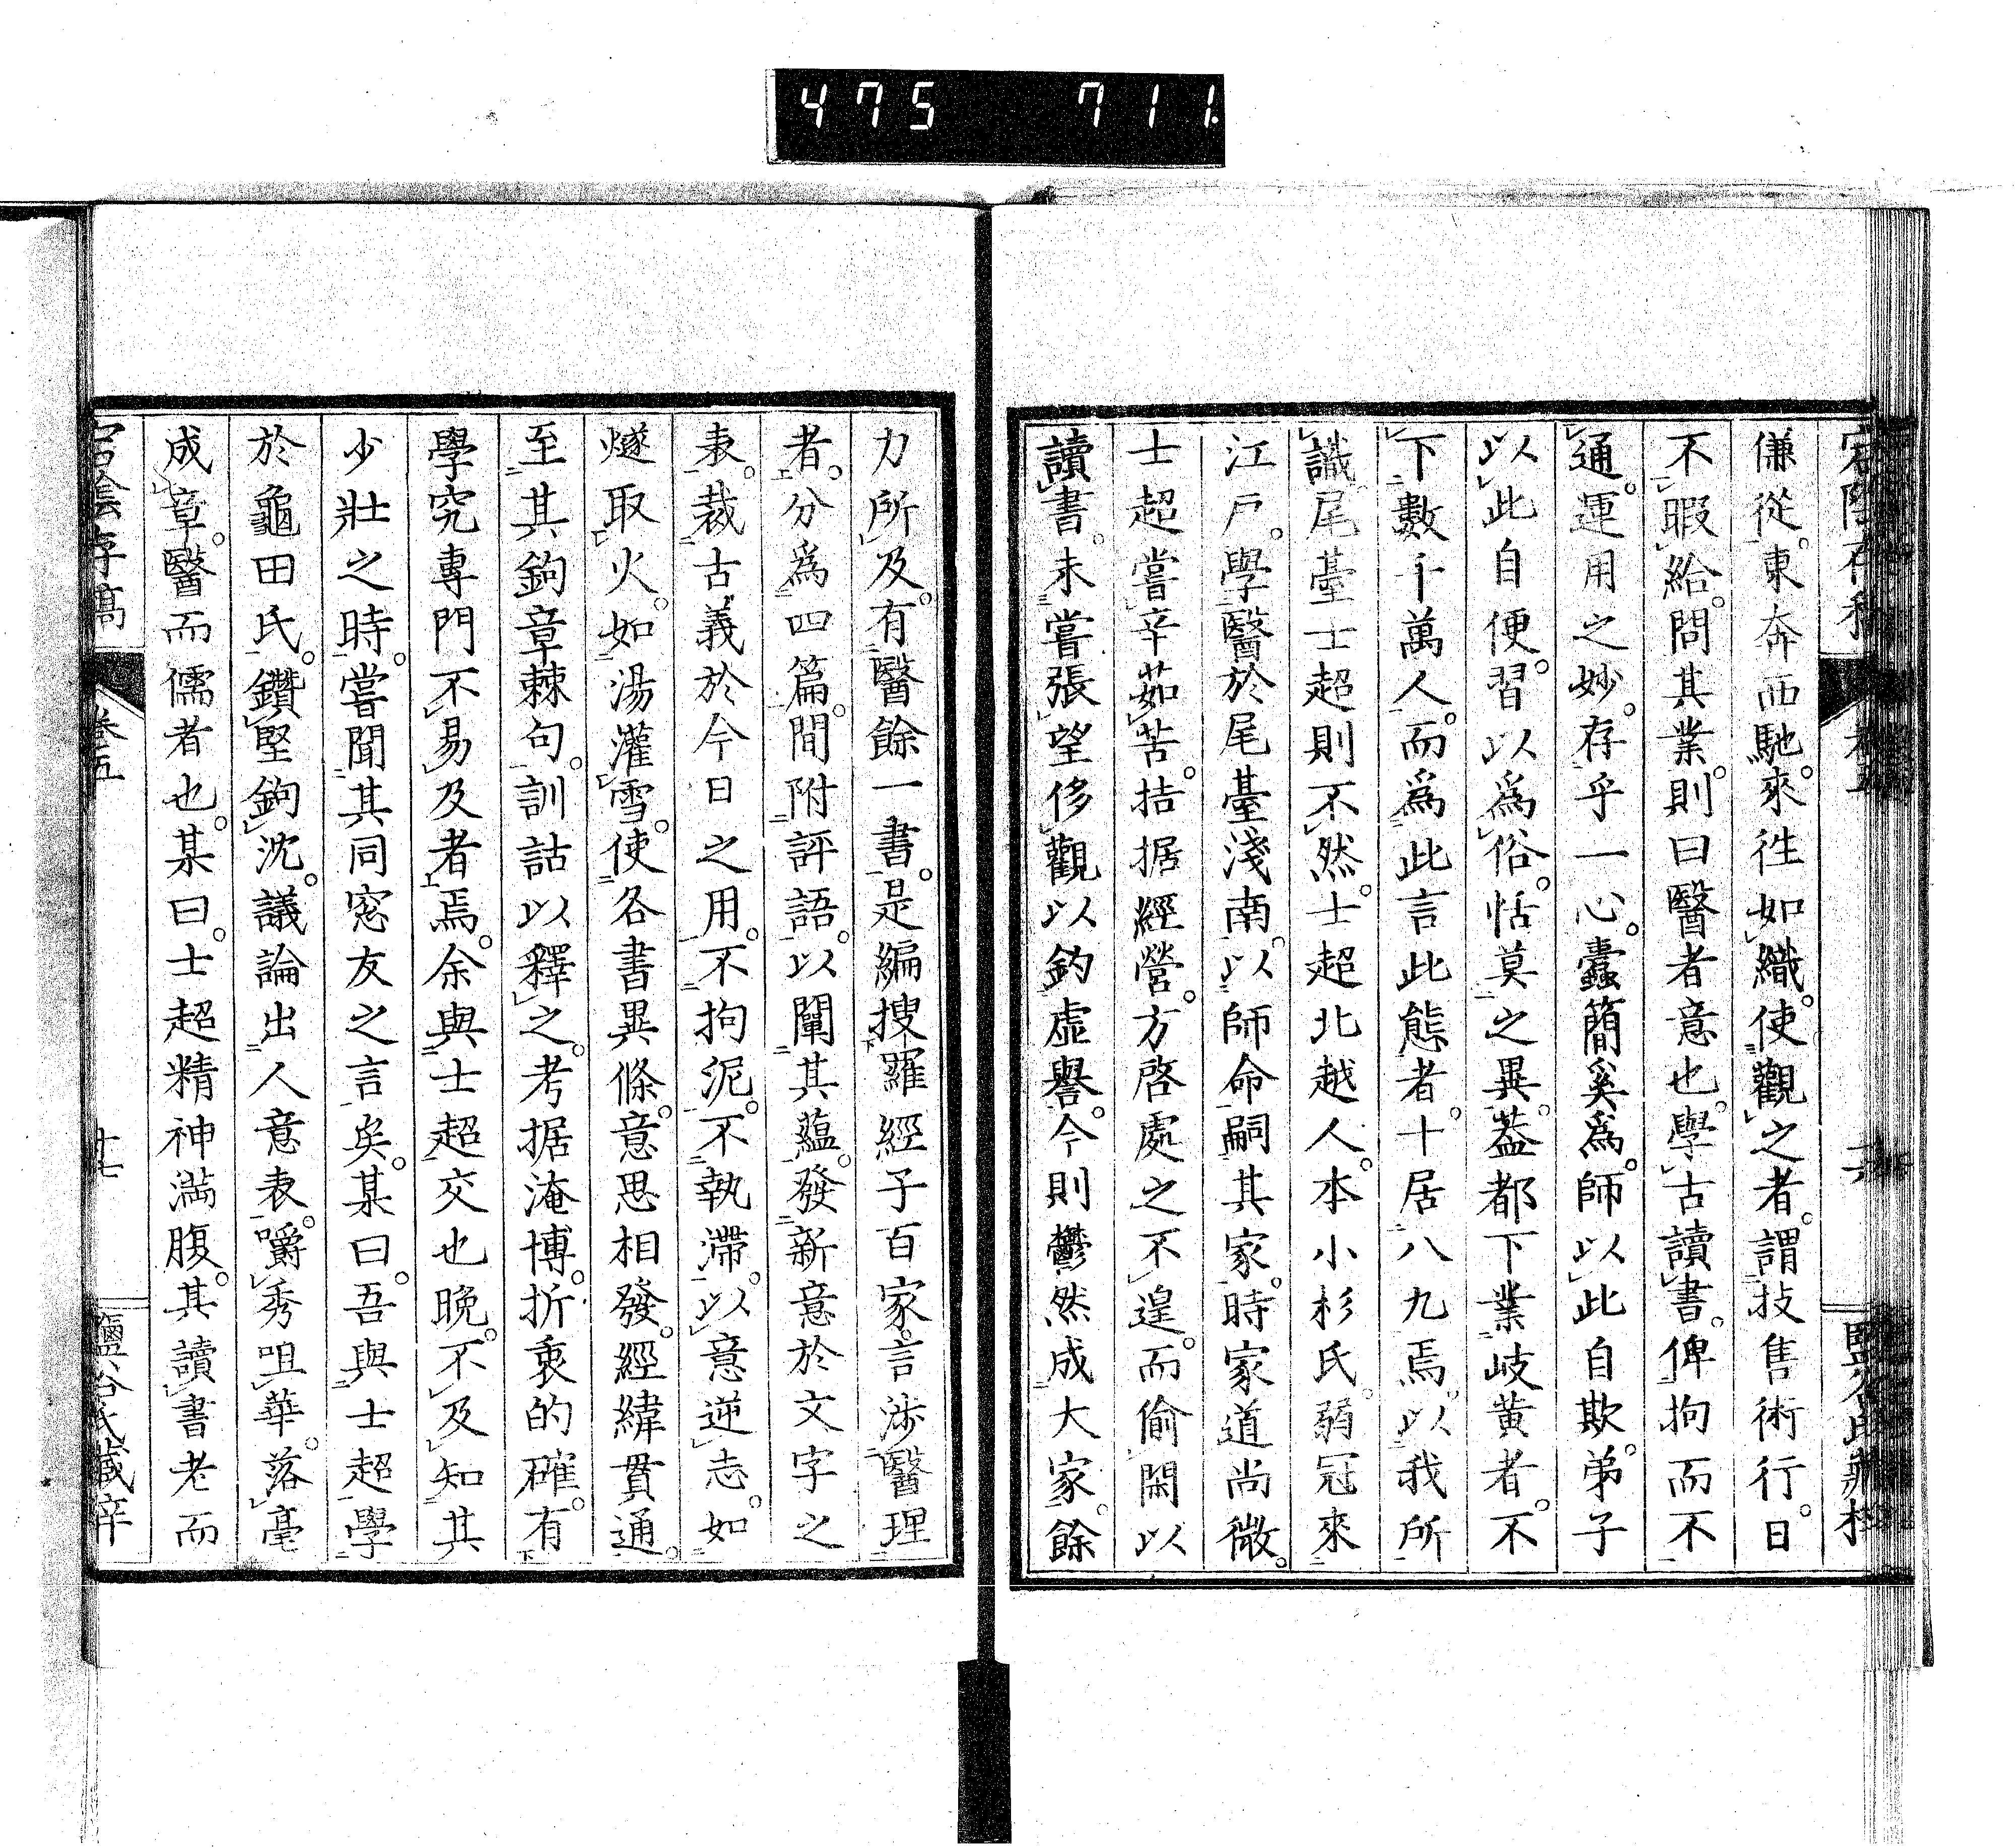 475 711
傔從。東奔西馳。來徃如織。使觀之者。謂技售術行。日
不暇給。問其業。則曰醫者意也。學古讀書。俾拘而不
通。運用之妙。存乎一心。蠹簡奚爲。師以此自欺。弟子
以此自便。習以爲俗。恬莫之異。葢都下業岐黄者。不
下數千萬人。而爲此言此態者。十居八九焉。以我所
識尾臺士超則不然。士超北越人。本小杉氏。弱冠來
江戸。學醫於尾臺淺南。以師命嗣其家。時家道尚微。
士超嘗辛茹苦。拮据經營。方啓處之不遑。而偷閑以
讀書。未嘗張望侈觀以釣虛譽。今則鬱然成大家。餘
力所及。有醫餘一書。是編搜羅經子百家。言涉醫理
者。分爲四篇。間附評語。以闡其蘊。發新意於文字之
表。裁古義於今日之用。不拘泥。不執滯。以意逆志。如
燧取火。如湯灌雪。使各書異條。意思相發。經緯貫通。
至其鉤章棘句。訓詁以釋之。考据淹博。折衷的確。有
學究專門不易及者焉。余與士超交也晩。不及知其
少壯之時。嘗聞其同窓友之言矣。某曰。吾與士超學
於龜田氏。鑽堅鉤沈。議論出人意表。嚼秀咀華。落毫
成章。醫而儒者也。某曰。士超精神滿腹。其讀書老而
宕陰存稿 卷五 十七 鹽谷氏藏梓